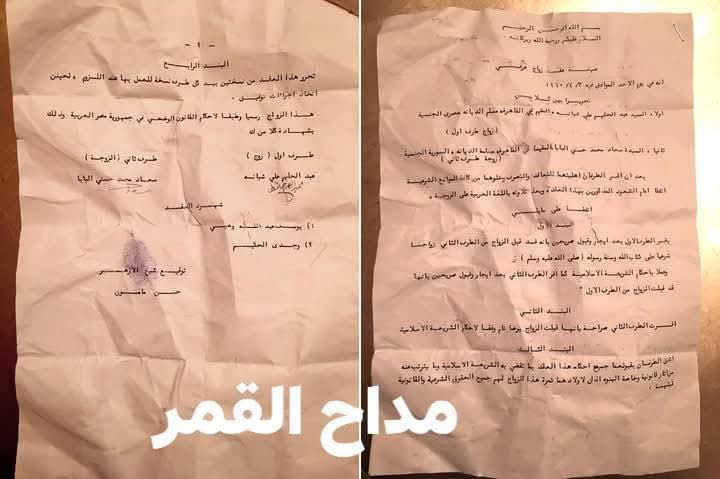 بسم الله الرحمن الرحيم
السلام عليكم ورحمة الله وبركاته
صيغة عقد زواج عرفي
انه في يوم الاحد الموافق فيه ٣ / ٤ / ١٩٦٠
تحريرا بين كلا من
اولا ، السيد عبد الحليم علي شبانه ، المقيم في القاهره مسلم الديانه مصرى الجنسية
( زواج طرف اول )
ثانيا ، السيدة سعاد محمد حسني البابا المقيمة في القاهره مسلمة الديانه ، السورية الجنسية
( زوجة طرف ثاني )
بعد ان اقر الطرفان اهليتهما للتعاقد والتصرف وخلوهما من كافة الموانع الشرعية
اتفقا امام الشهود المذكورين بهذا العقد ، وبعد تلاوته باللغة العربية على الزوجية ،
اتفقا على مايلي
البند الاول
يقر الطرف الاول بعد ايجاب وقبول صريحين بانه قد قبل الزواج من الطرف الثاني زواجا
شرعيا على كتاب الله وسنة رسوله ( صلى الله عليه وسلم )
وعملا باحكام الشريعة الاسلامية كما اقر الطرف الثاني بعد ايجاب وقبول صريحين بانها
قد قبلت الزواج من الطرف الاول
البند الثاني
اقرت الطرف الثاني صراحة بانها قبلت الزواج برضا تام وفقا لاحكام الشريعة الاسلامية
البند الثالث
اتفق الطرفان بقبولهما جميع احكام هذا العقد بما تقضي به الشريعة الاسلامية وما يترتب عنه
من اثار قانونية وخاصة البنوه اذ ان لاولادهما ثمرة هذا الزواج لهم جميع الحقوق الشرعية والقانونية
قبلهما
البند الرابع
تحرر هذا العقد من نسختين بيد كل طرف نسخة للعمل بها عند اللزوم ، لحين
اتخاذ اجراءات توثيق
هذا الزواج رسميا وطبقا لاحكام القانون الوضعي في جمهورية مصر العربية وذلك
بشهادة كلا من
طرف اول ( زوج )
طرف ثاني ( الزوجة )
عبد الحليم علي شبانه
سعاد محمد حسني البابا
شهود العقد
١) يوسف عبد الله وهبي
٢) وجدى الحكيم
توقيع شيخ الازهر
حسن مامون
مداح القمر